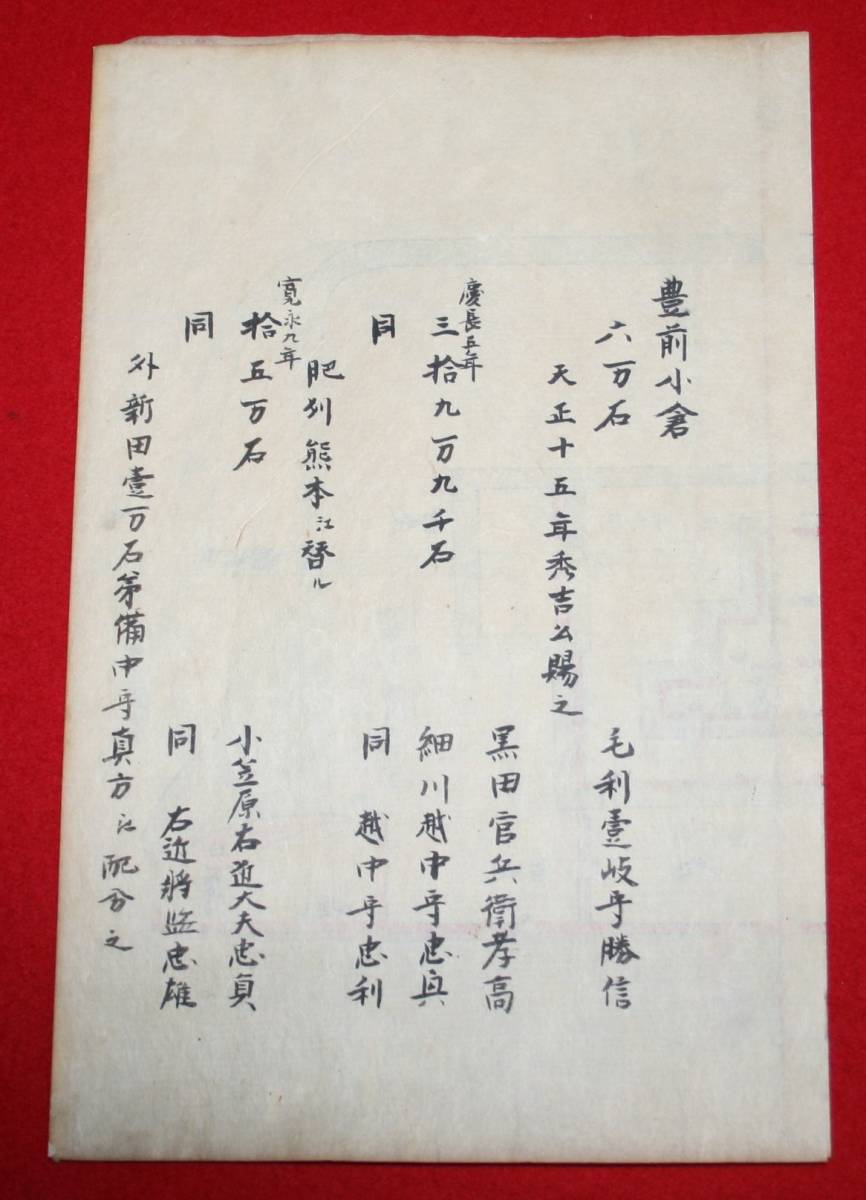 豊前小倉
六万石 毛利壹岐守勝信
天正十五年秀吉公賜之
黒田官兵衛孝高
慶長五年
三拾九万九千石 細川越中守忠興
同 同 越中守忠利
肥列熊本江替ル
寛永九年
拾五万石 小笠原右近大夫忠眞
同 同 右近将監忠雄
外新田壹万石弟備中守真方江配分之